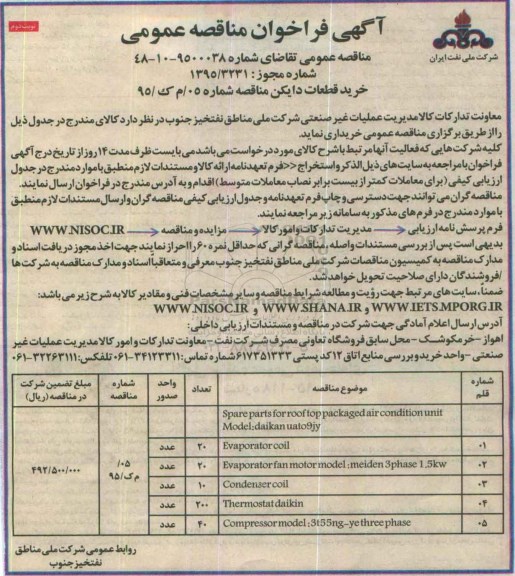 نوبت دوم
آگهی فراخوان مناقصه عمومی
شرکت ملی نفت ایران
مناقصه عمومی تقاضای شماره ۹۵۰۰۰۳۸-۱۰-۴۸
شماره مجوز : ۱۳۹۵/۳۲۳۱
خرید قطعات دایکن مناقصه شماره ۰۵/م ک /۹۵
معاونت تدارکات کالا مدیریت عملیات غیر صنعتی شرکت ملی مناطق نفتخیز جنوب در نظر دارد کالای مندرج در جدول ذیل
را از طریق برگزاری مناقصه عمومی خریداری نماید.
کلیه شرکت هایی که فعالیت آنها مرتبط با شرح کالای مورد درخواست می باشد می بایست ظرف مدت ۱۴ روز از تاریخ درج آگهی
فراخوان با مراجعه به سایت های ذیل الذکر و استخراج <<فرم تعهدنامه ارائه کالا و مستندات لازم منطبق با موارد مندرج در جدول
ارزیابی کیفی (برای معاملات کمتر از بیست برابر نصاب معاملات متوسط) اقدام و به آدرس مندرج در فراخوان ارسال نمایند.
مناقصه گران می توانند جهت دسترسی و چاپ فرم تعهدنامه و جدول ارزیابی کیفی مناقصه گران و ارسال مستندات لازم منطبق
با موارد مندرج در فرم های مذکور به سامانه زیر مراجعه نمایند.
فرم پرسش نامه ارزیابی ← مدیریت تدارکات و امور کالا ← مزایده و مناقصه ← WWW.NISOC.IR
بدیهی است پس از بررسی مستندات واصله، مناقصه گرانی که حداقل نمره ۶۰ را احراز نمایند جهت اخذ مجوز دریافت اسناد و
مدارک مناقصه به کمیسیون مناقصات شرکت ملی مناطق نفتخیز جنوب معرفی و متعاقباً اسناد و مدارک مناقصه به شرکت ها
/فروشندگان دارای صلاحیت تحویل خواهد شد.
ضمناً، سایت های مرتبط جهت رؤیت و مطالعه شرایط مناقصه و سایر مشخصات فنی و مقادیر کالا به شرح زیر می باشد:
WWW.IETS.MPORG.IR و WWW.SHANA.IR و WWW.NISOC.IR
آدرس ارسال اعلام آمادگی جهت شرکت در مناقصه و مستندات ارزیابی داخلی:
اهواز -خرمکوشک - محل سابق فروشگاه تعاونی مصرف شرکت نفت - معاونت تدارکات و امور کالا مدیریت عملیات غیر
صنعتی -واحد خرید و بررسی منابع اتاق ۱۲ کد پستی ۶۱۷۳۵۱۳۳۳ شماره تماس: ۳۴۱۲۳۳۱۱-۰۶۱ تلفکس: ۳۲۲۶۳۱۱۱-۰۶۱
شماره قلم موضوع مناقصه تعداد واحد صدور شماره مناقصه مبلغ تضمین شرکت در مناقصه (ریال)
Spare parts for roof top packaged air condition unit
Model:daikan uato9jy
۰۱ Evaporator coil ۲۰ عدد
۰۲ Evaporator fan motor model : meiden 3phase 1,5kw ۲۰ عدد
۰۳ Condenser coil ۱۰ عدد
۰۴ Thermostat daikin ۲۰۰ عدد
۰۵ Compressor model : 3t55ng-ye three phase ۴۰ عدد
۰۵/ م ک/ ۹۵
۴۹۲/۵۰۰/۰۰۰
روابط عمومی شرکت ملی مناطق
نفتخیز جنوب